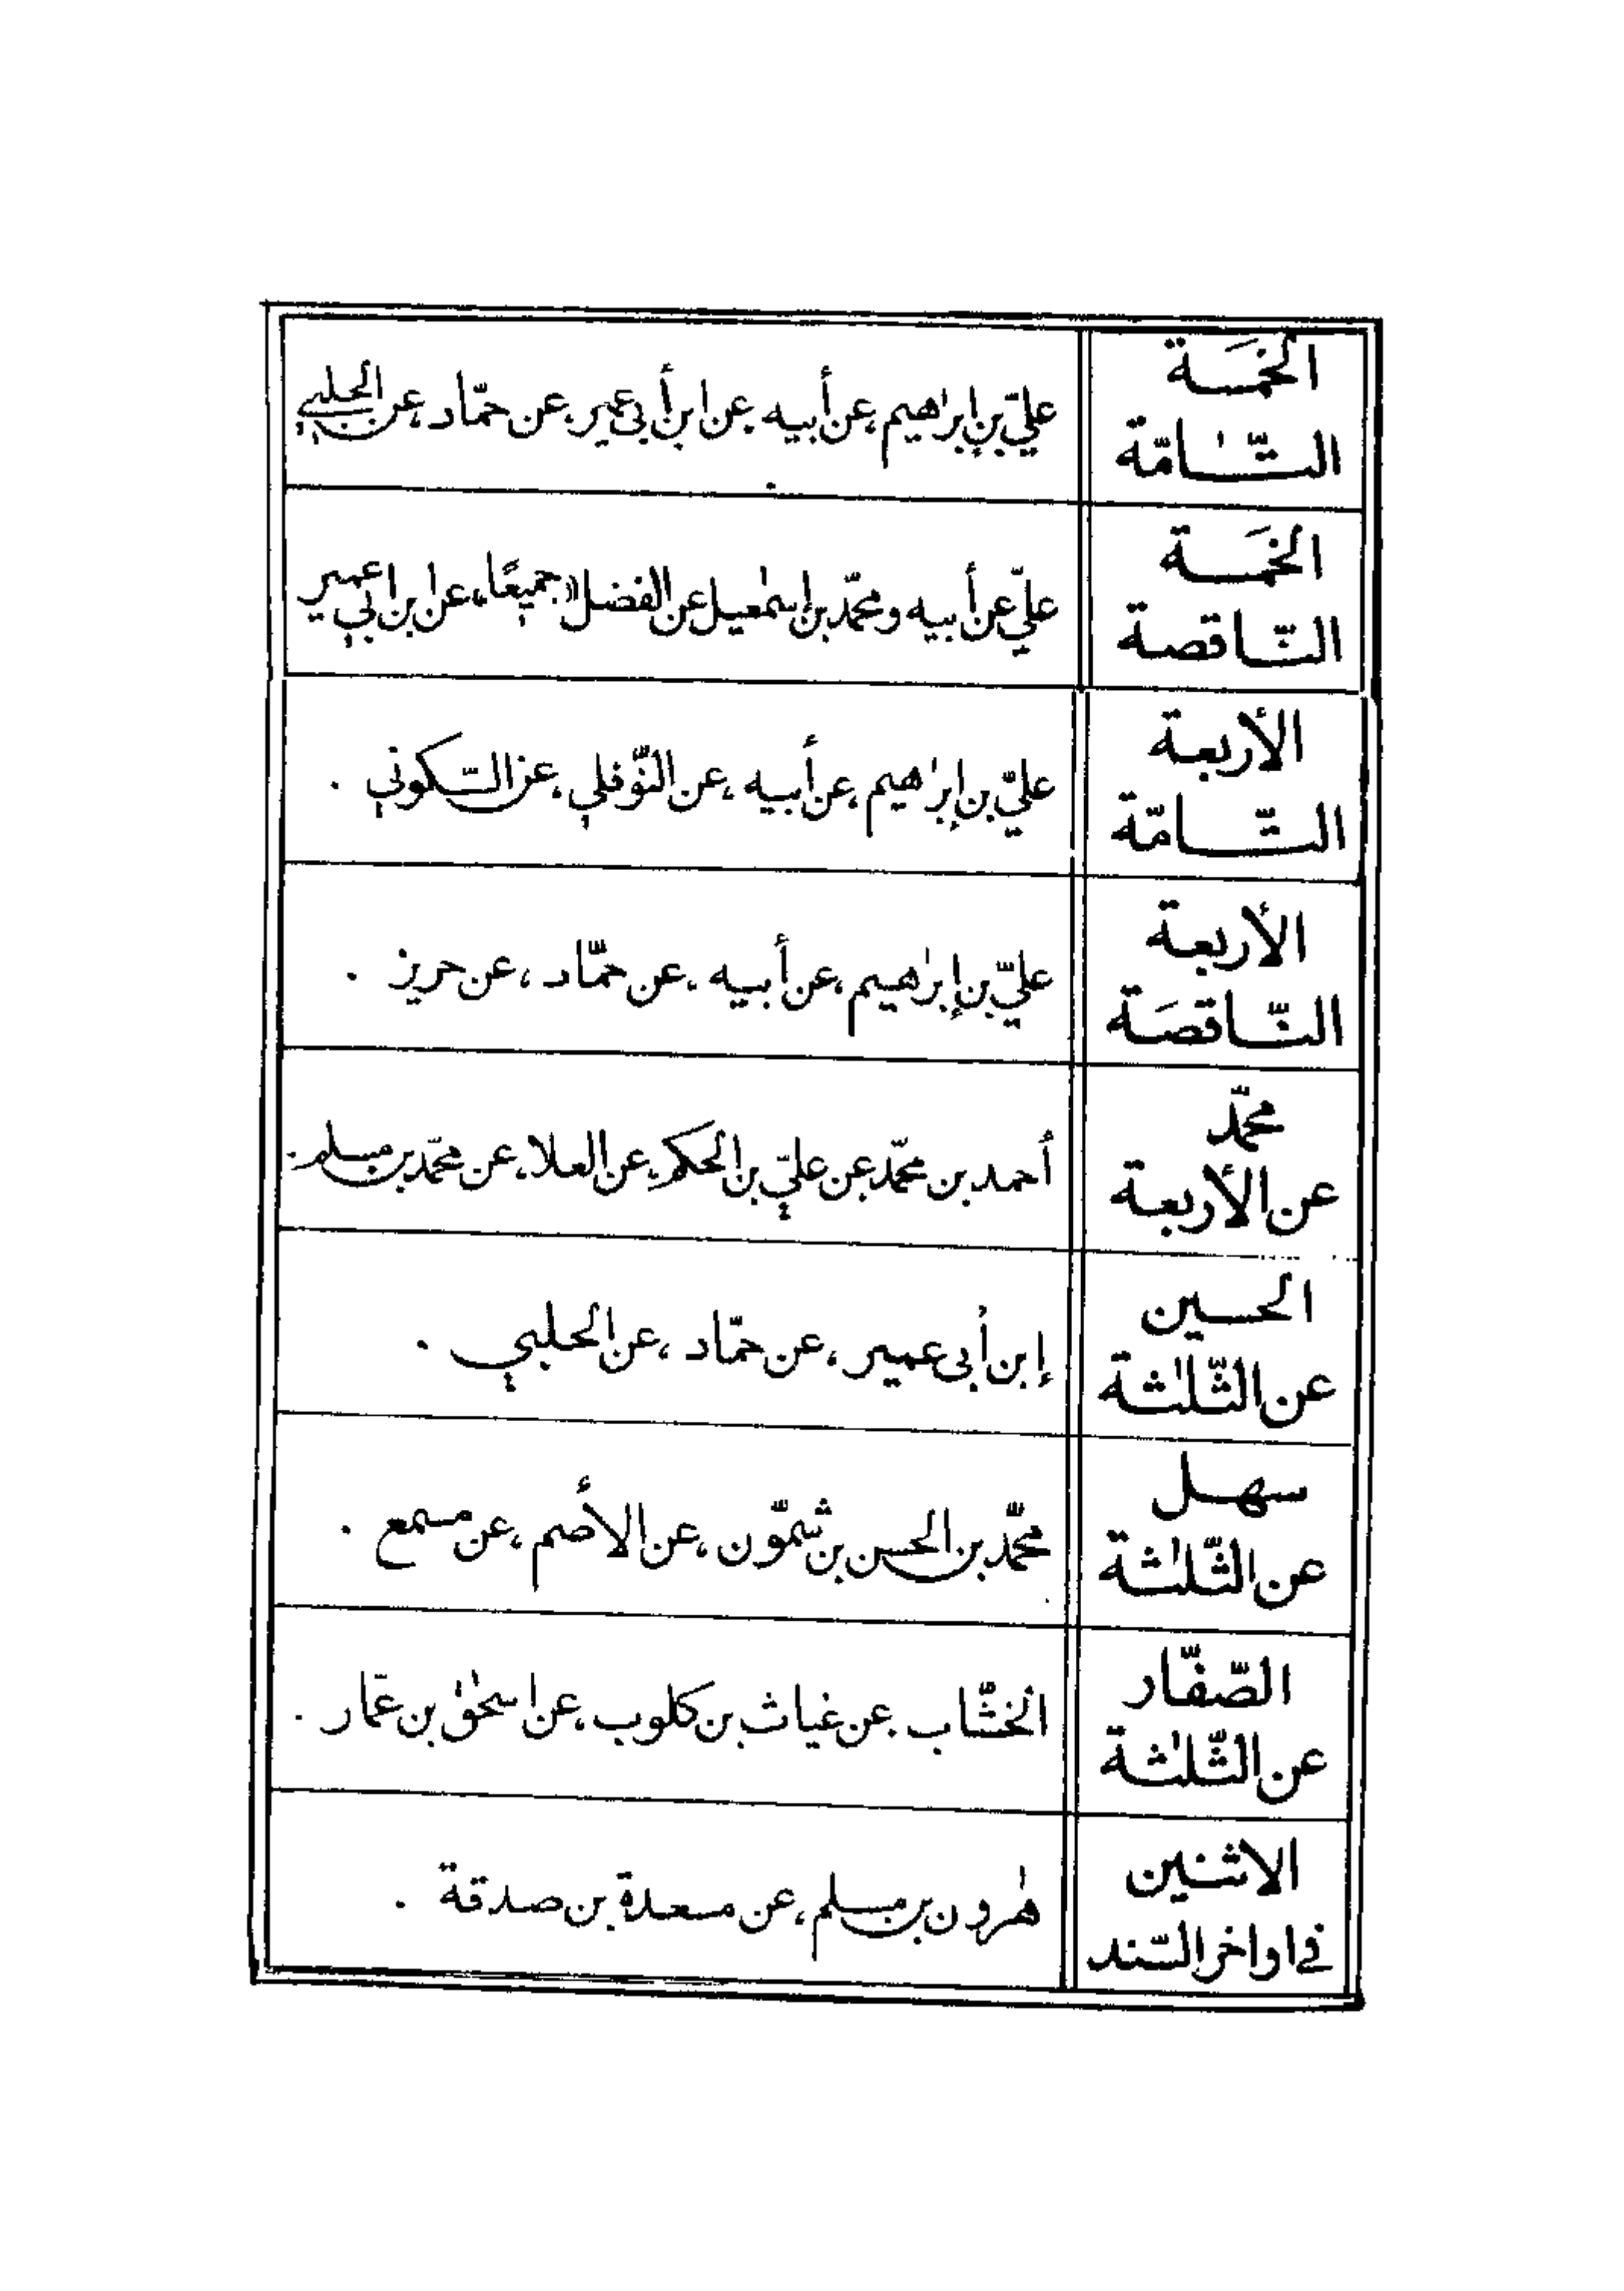 الخَمسَة
التّامّة
عليّ بن إبراهيم، عن أبيه، عن ابن أبي عمير، عن حمّاد، عن الحلبي
الخَمسَة
النّاقصة
عليّ عن أبيه ومحمّد بن إسمٰعيل عن الفضل «جميعًا»، عن ابن ابي عمير
الأربعة
التّامّة
عليّ بن إبرٰاهيم، عن أبيه، عن النّوفلي، عن السّكوني .
الأربعة
النّاقصَة
عليّ بن إبرٰاهيم، عن أبيه، عن حمّاد، عن حريز .
محمّد
عن الأربعة
أحمد بن محمّد عن عليّ بن الحكم، عن العلا، عن محمّد بن مسلم .
الحسين
عن الثّلٰثة
إبن أبى عمير، عن حمّاد، عن الحلبي .
سهل
عن الثّلٰثة
محمّد بن الحسن بن شمّون، عن الأصم، عن مسمع .
الصّفّار
عن الثّلٰثة
الخشّاب، عن غياث بن كلوب، عن اسحٰق بن عمّار .
الاثنين
في اواخر السّند
هٰرون بن مسلم، عن مسعدة بن صدقة .